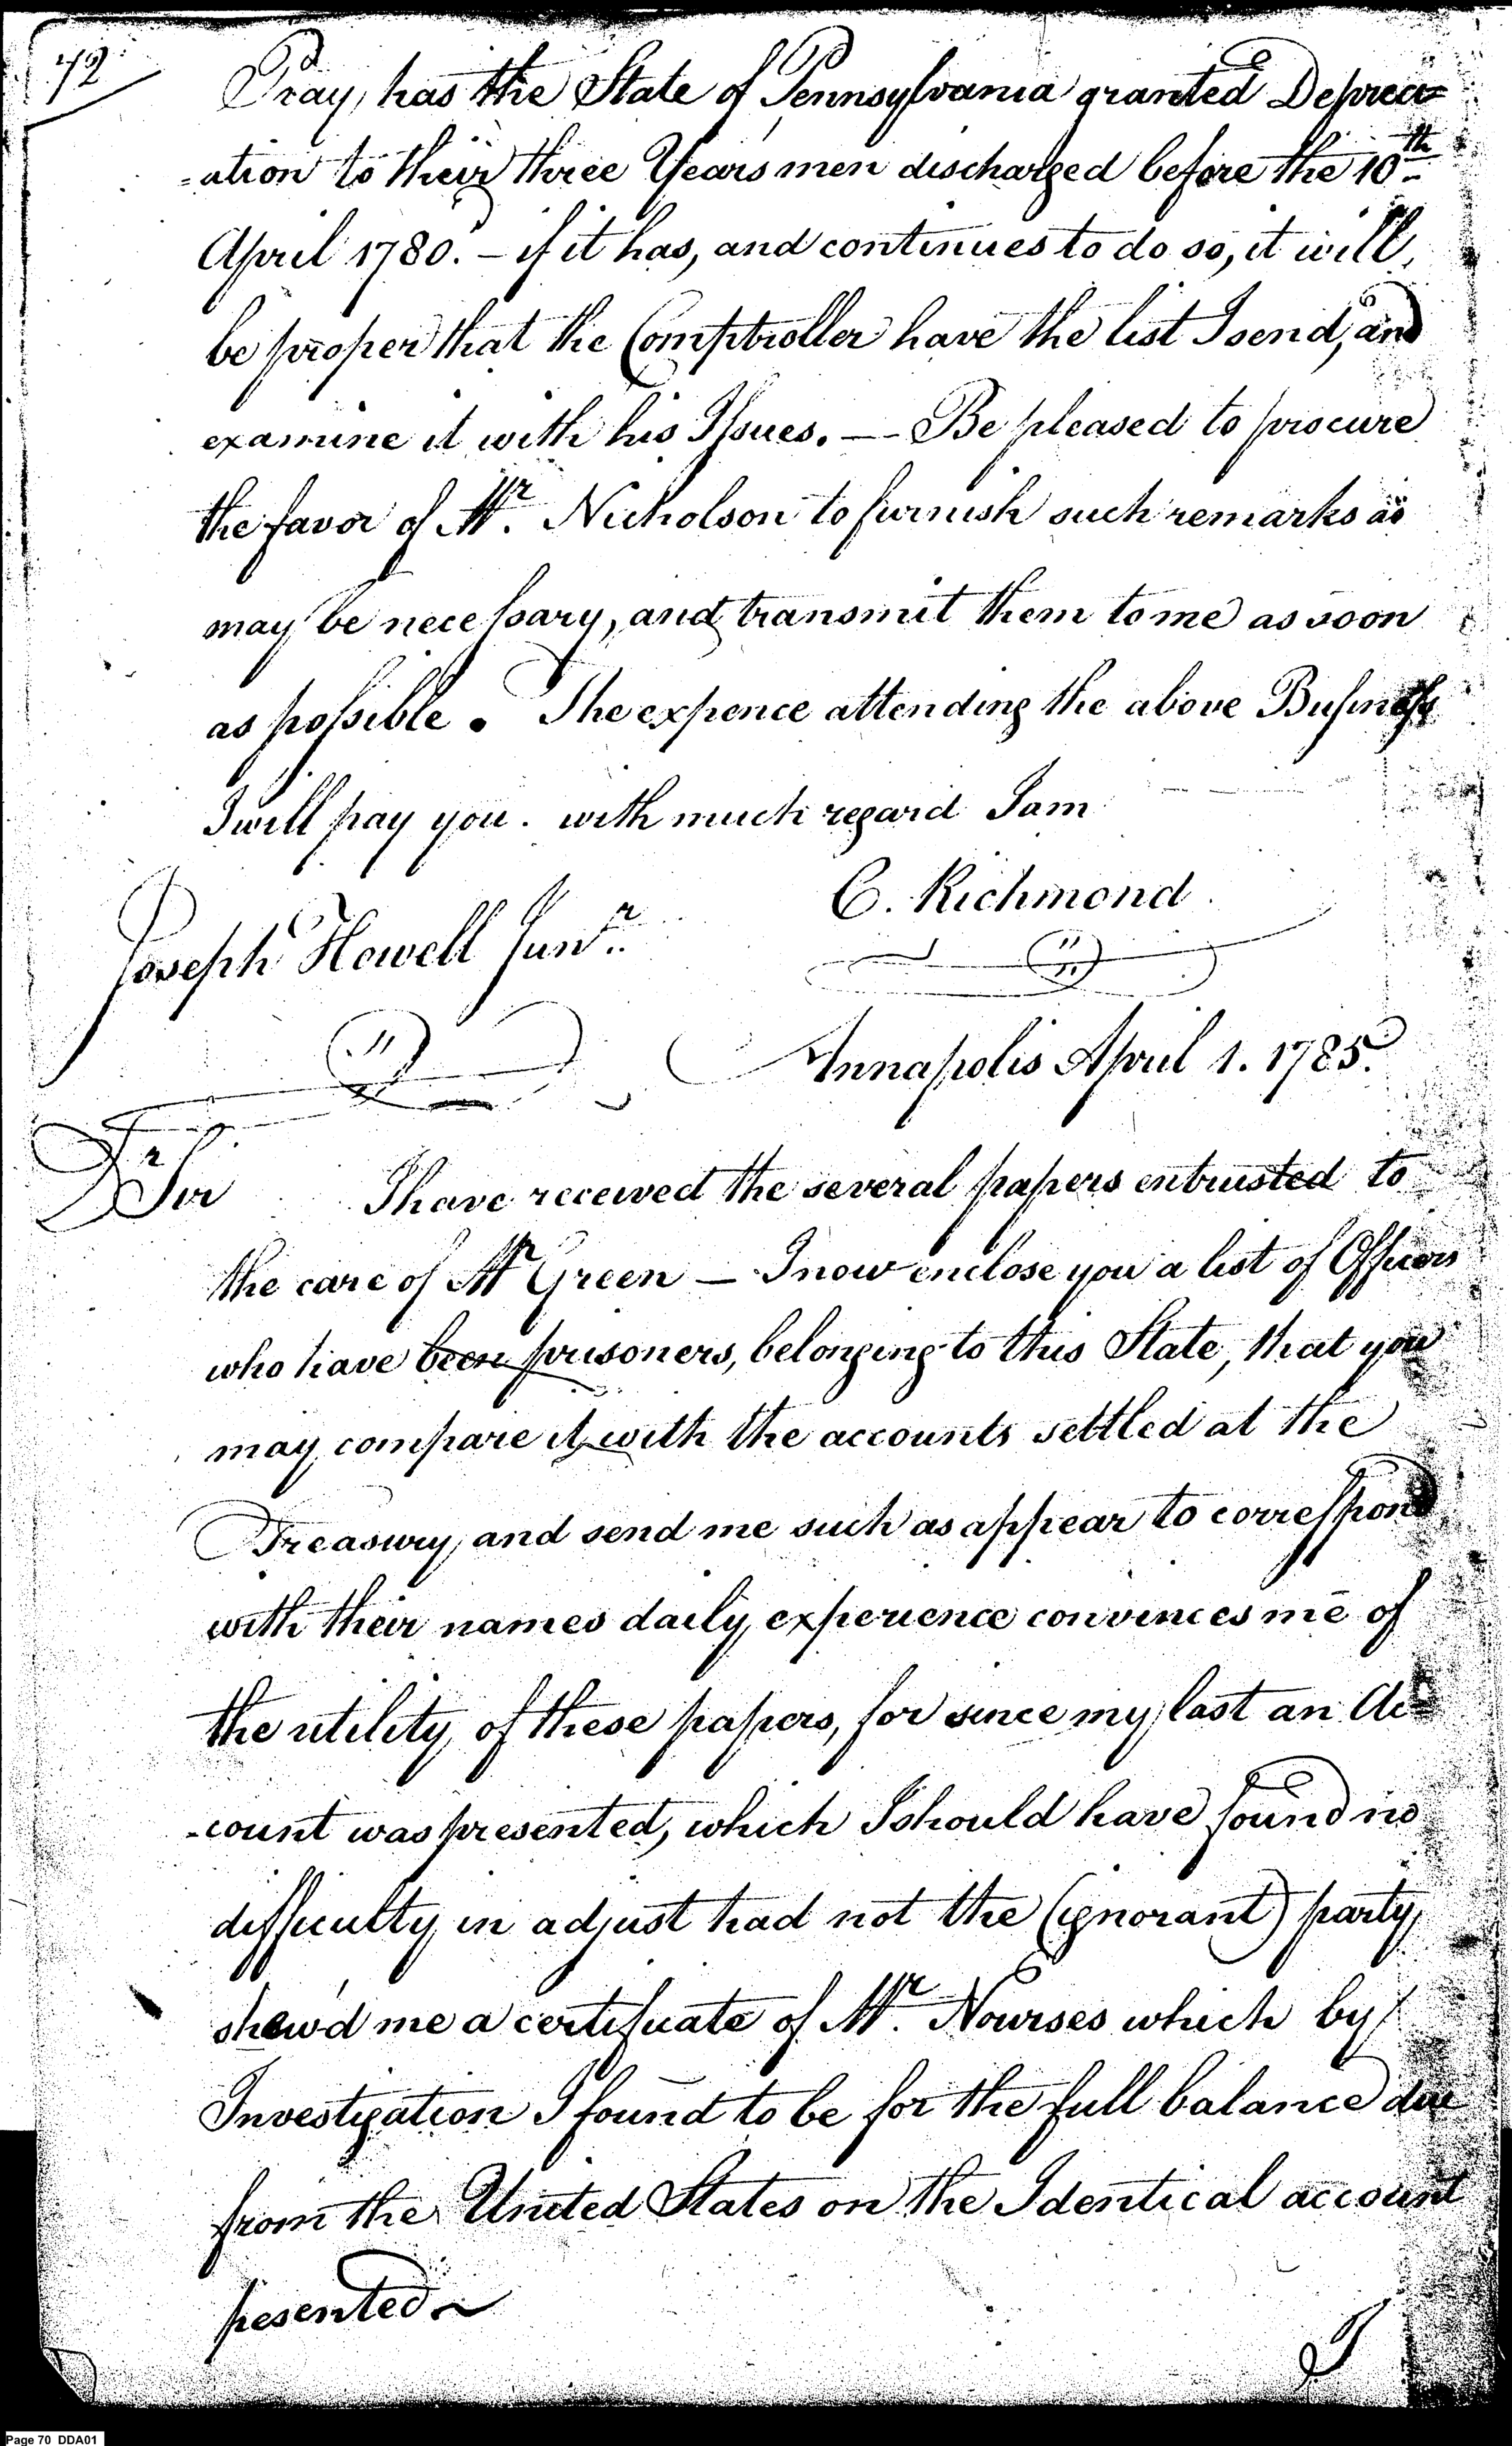 72
Pray, has the State of Pennsylvania granted Depreci=
=ation to their three Years men discharged before the 10th
April 1780. – if it has, and continues to do so, it will
be proper that the Comptroller have the list I send, and
examine it with his Issues. — Be pleased to procure
the favor of Mr. Nicholson to furnish such remarks as
may be necessary, and transmit them to me as soon
as possible. The expence attending the above Business
I will pay you. with much regard I am
C. Richmond
Joseph Howell Junr.
Annapolis April 1. 1785.
Dr Sir I have received the several papers entrusted to
the care of Mr Green — I now enclose you a list of Officers
who have been prisoners, belonging to this State, that you
may compare it with the accounts settled at the
Treasury, and send me such as appear to correspond
with their names daily experience convinces me of
the utility of these papers, for since my last an Ac=
-count was presented, which I should have found no
difficulty in adjust had not the (ignorant) party
shew'd me a certificate of Mr. Nourses which by
Investigation I found to be for the full balance due
from the United States on the Identical account
pesented~
I
Page 70 DDA01